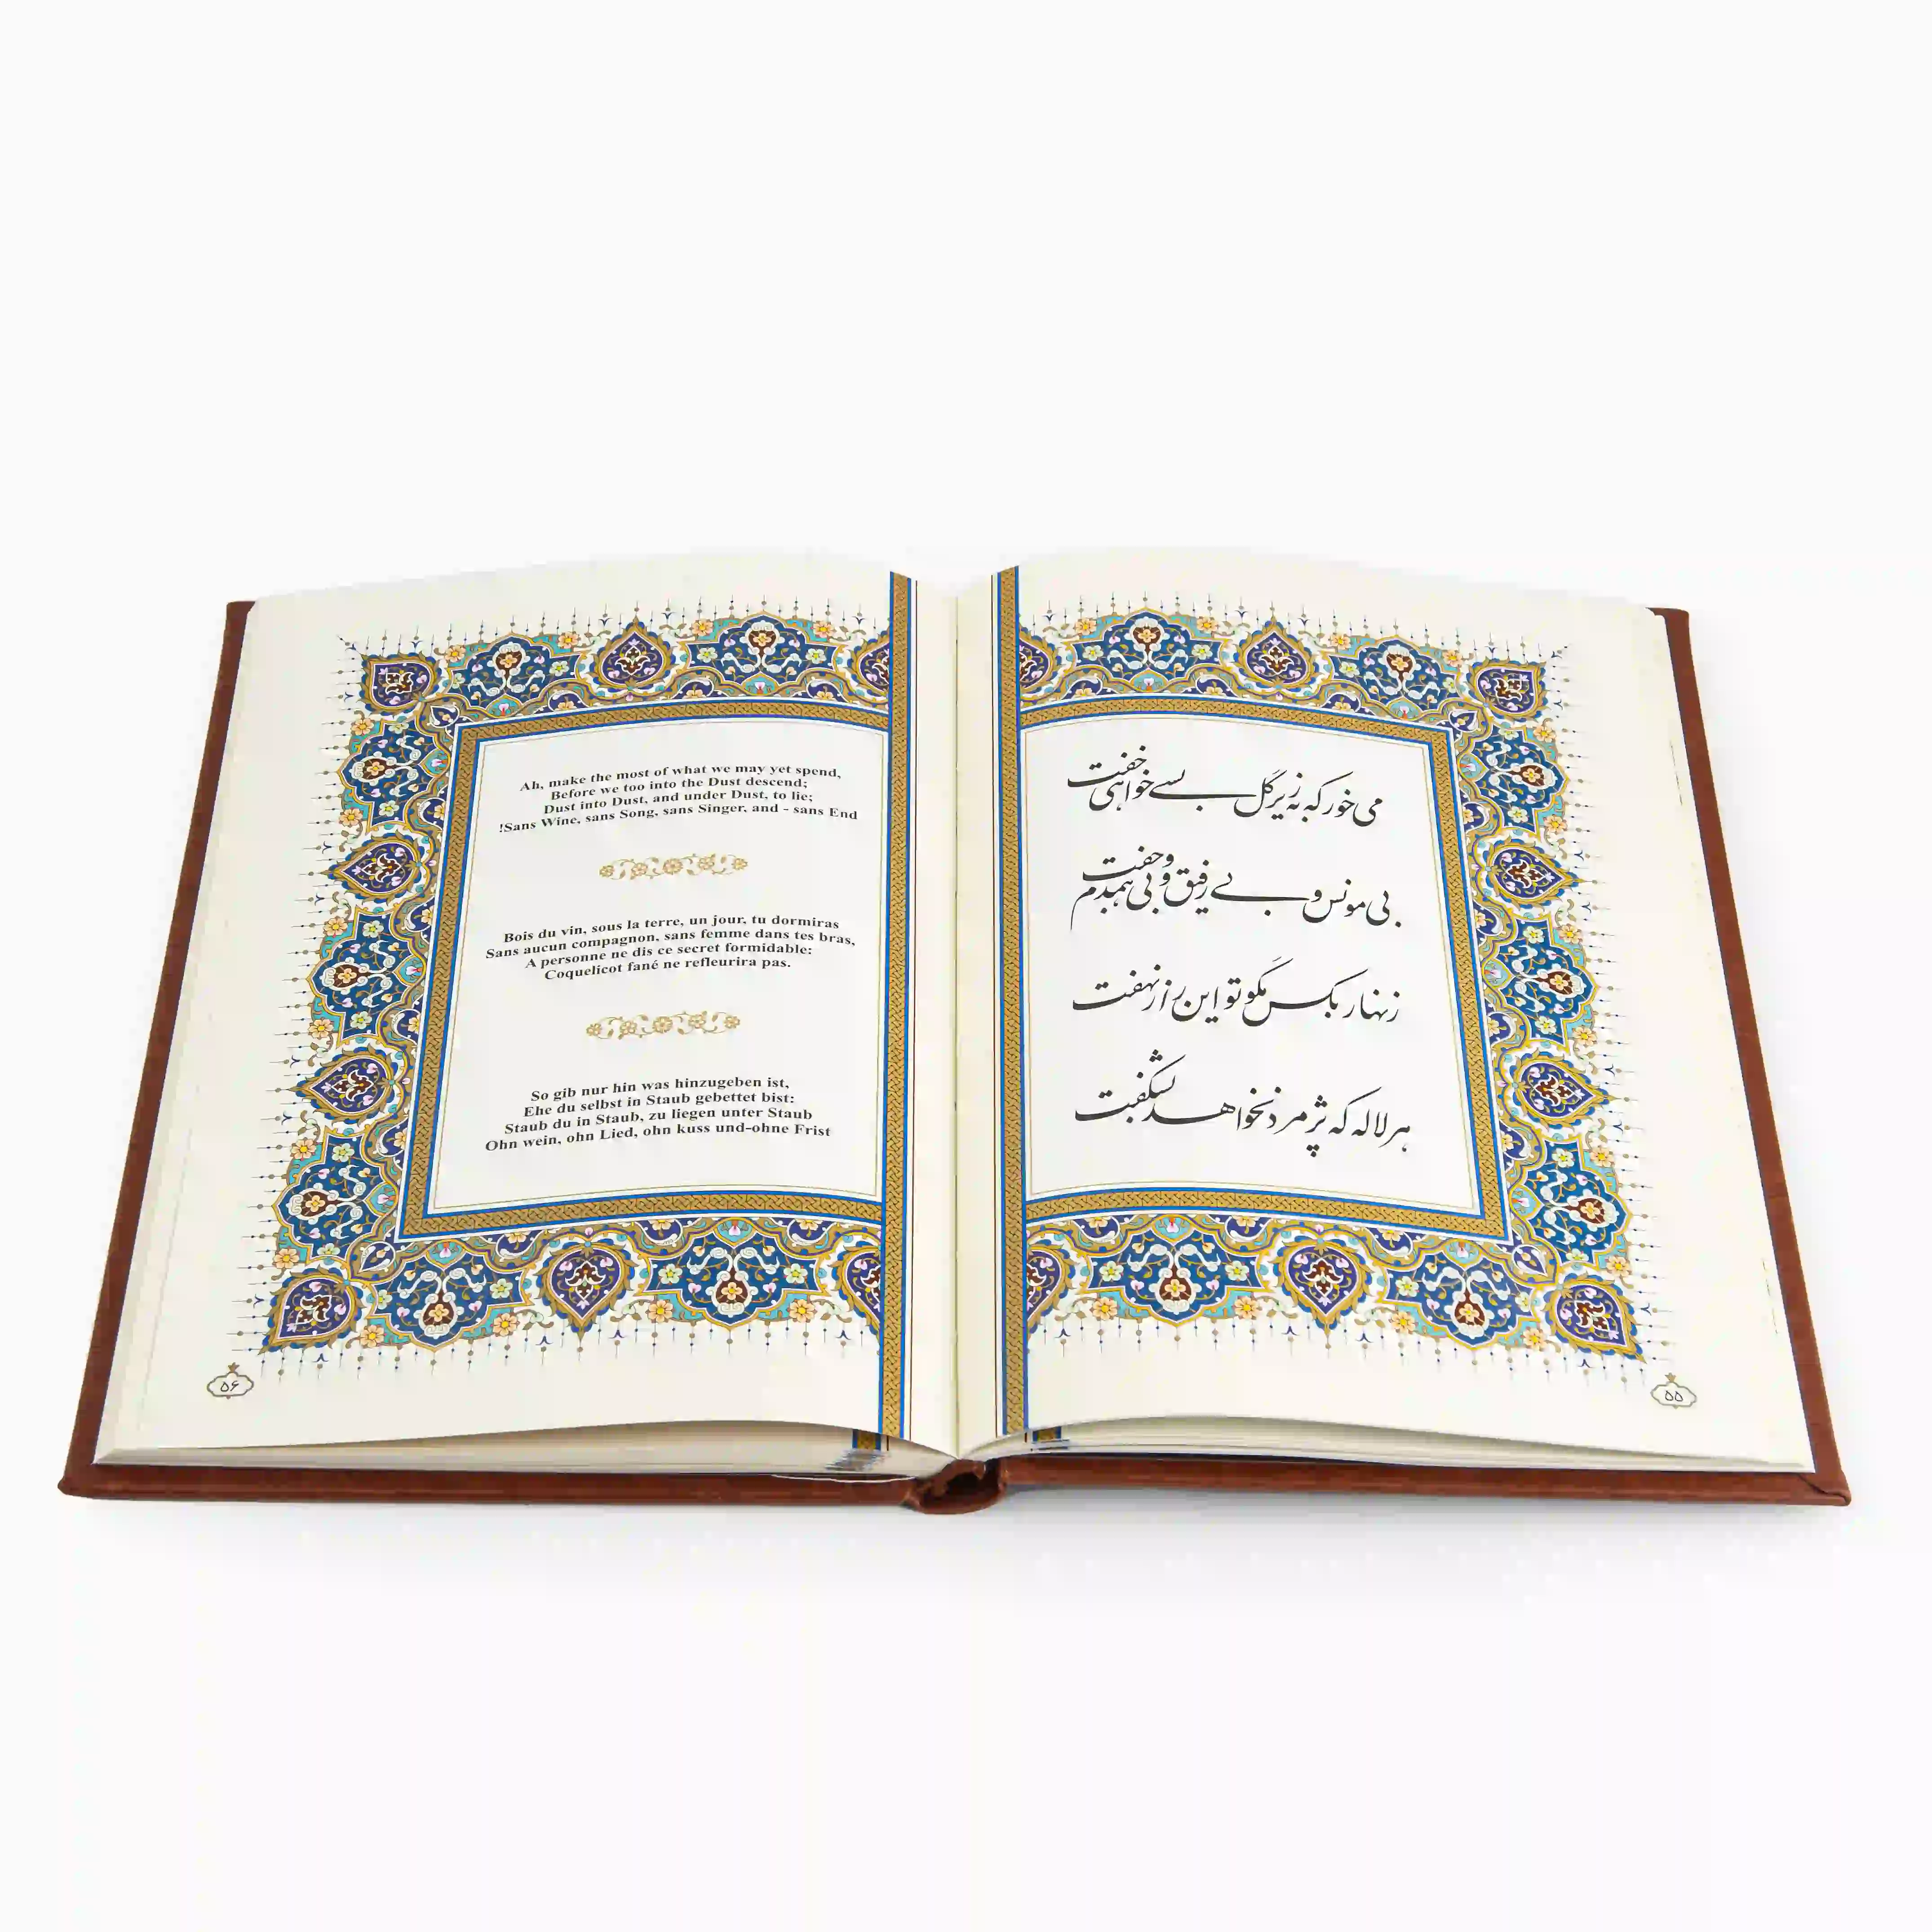 می خور که به زیر گل بسے خواهی خفت
بی مونس و بے رفیق و بی همدم و جفت
زنهار بکس مگو تو این راز نهفت
هر لاله که پژمرد نخواهد بشگفت
۵۵
Ah, make the most of what we may yet spend,
Before we too into the Dust descend;
Dust into Dust, and under Dust, to lie;
!Sans Wine, sans Song, sans Singer, and - sans End
Bois du vin, sous la terre, un jour, tu dormiras
Sans aucun compagnon, sans femme dans tes bras,
A personne ne dis ce secret formidable:
Coquelicot fané ne refleurira pas.
So gib nur hin was hinzugeben ist,
Ehe du selbst in Staub gebettet bist:
Staub du in Staub, zu liegen unter Staub
Ohn wein, ohn Lied, ohn kuss und-ohne Frist
۵۶